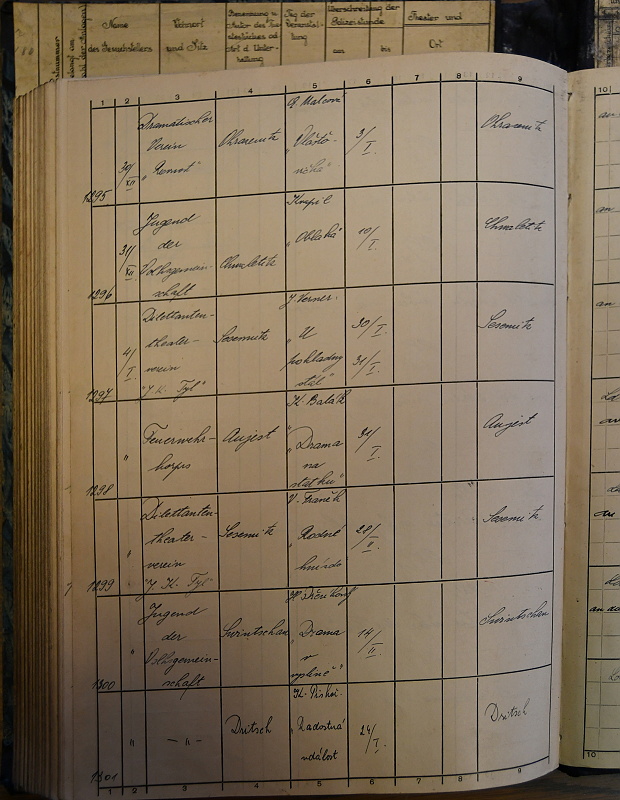 Name
des Gesuchstellers
Wohnort
und Sitz
Benennung u.
Autor des
Art d. Unter-
haltung
Tag der
Veranstal-
tung
Überschreitung der
Polizeistunde
von
bis
Theater und
Ort
1 2 3 4 5 6 7 8 9
1295
30/XII
Dramatischer
Verein
Ohrazenitz
"Vlašto-
vička"
3/I.
Ohrazenitz
1296
31/XII
Jugend
der
Volksgemein-
schaft
Chwaletitz
"Oblaka"
10/I.
Chwaletitz
1297
4/I
Dilettanten-
theater-
verein
"J. K. Tyl"
Sesemitz
J. Verner:
"U
pokladny
stál"
30/I.
31/I.
Sesemitz
1298
"
Feuerwehr-
korps
Aujest
K. Balák
"Drama
na
statku"
31/I.
Aujest
1299
"
Dilettanten-
theater-
verein
"J. K. Tyl"
Sesemitz
"Rodné
hnízdo"
28/II.
Sesemitz
1300
"
Jugend
der
Volksgemein-
schaft
Swintschan
"Drama
v
14/II.
Swintschan
1301
"
— " —
Dritsch
"Radostná
událost
24/I.
Dritsch
1 2 3 4 5 6 7 8 9
10
10